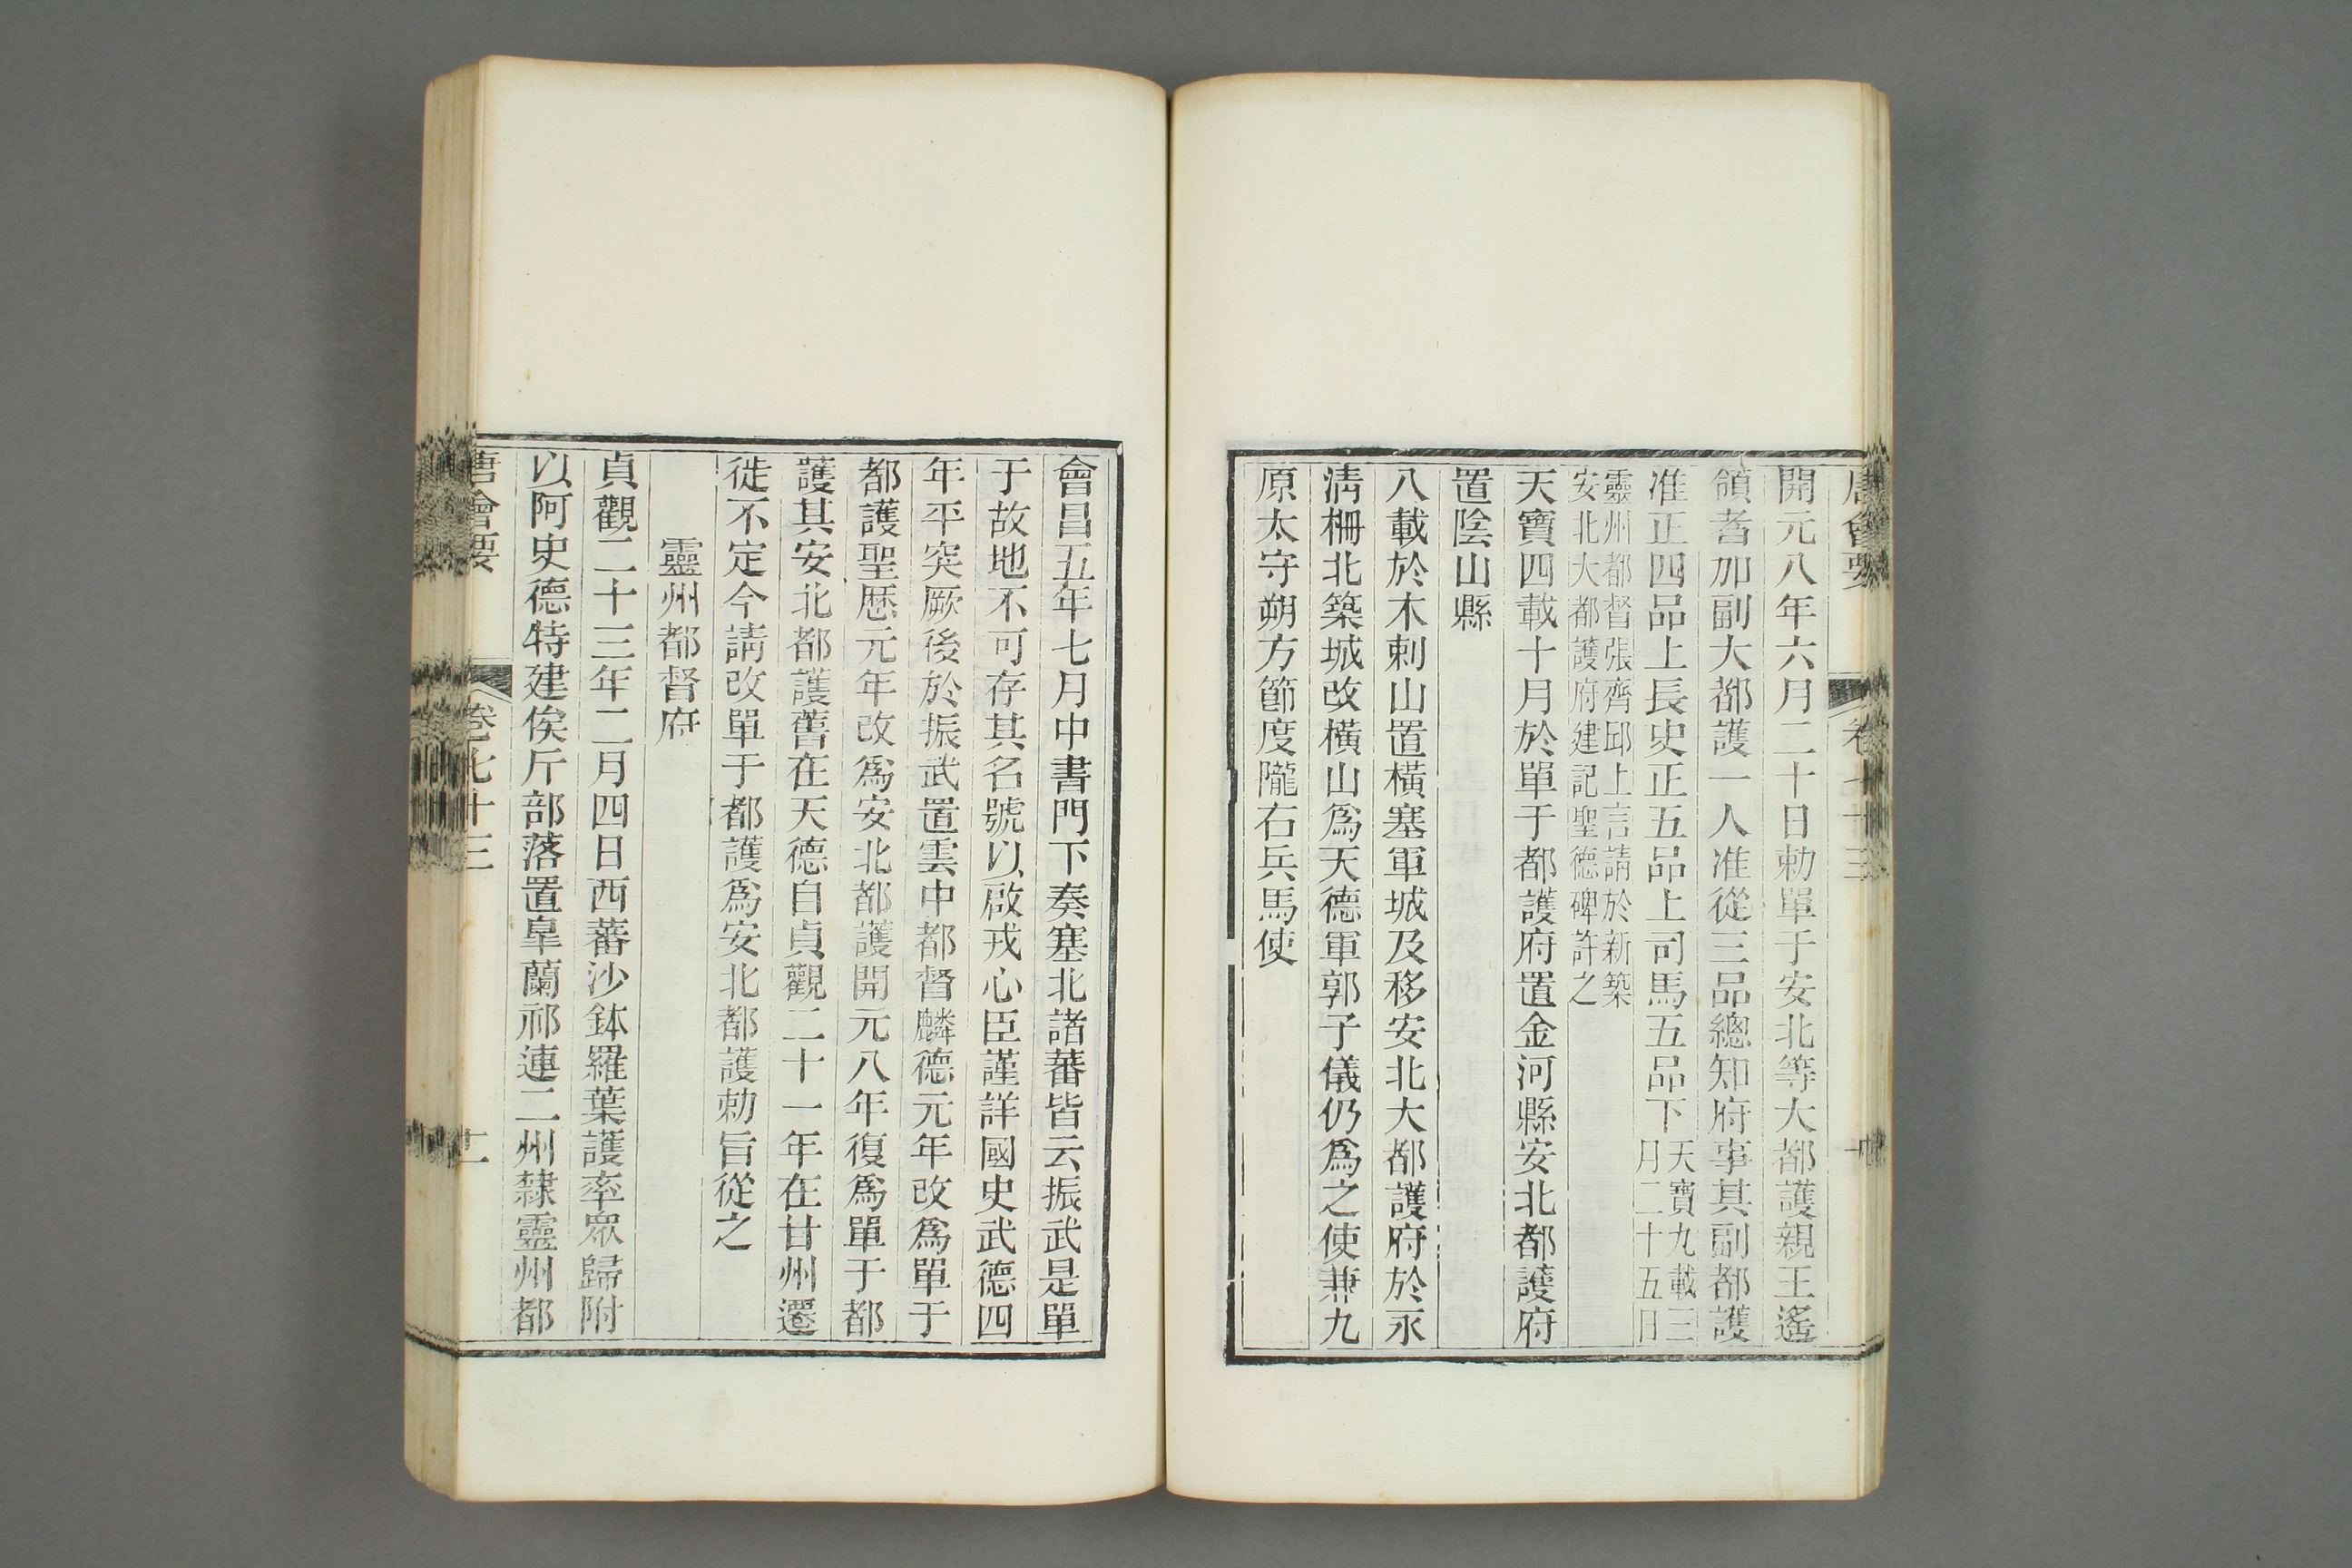 唐會要 卷七十三
開元八年六月二十日勅單于安北等大都護親王遙
領者加副大都護一人准從三品總知府事其副都護
准正四品上長史正五品上司馬五品下天寶九載三
月二十五日
靈州都督張齊邱上言請於新築
安北大都護府建記聖德碑許之
天寶四載十月於單于都護府置金河縣安北都護府
置陰山縣
八載於木剌山置橫塞軍城及移安北大都護府於永
清柵北築城改橫山爲天德軍郭子儀仍爲之使兼九
原太守朔方節度隴右兵馬使
會昌五年七月中書門下奏塞北諸蕃皆云振武是單
于故地不可存其名號以啟戎心臣謹詳國史武德四
年平突厥後於振武置雲中都督麟德元年改爲單于
都護聖歴元年改爲安北都護開元八年復爲單于都
護其安北都護舊在天德自貞觀二十一年在甘州遷
徙不定今請改單于都護爲安北都護勅旨從之
靈州都督府
貞觀二十三年二月四日西蕃沙鉢羅葉護率眾歸附
以阿史德特建俟斤部落置皐蘭祁連二州隸靈州都
唐會要 卷七十三